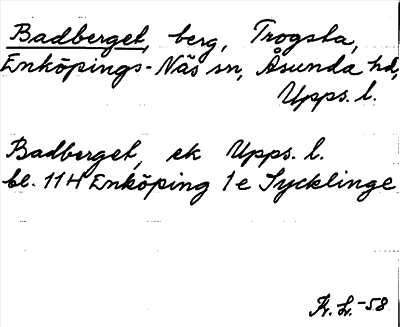 Badberget, berg, Trogsta,
Enköpings-Näs sn, Åsunda hd,
Upps. l.
Badberget, ek Upps. l.
bl. 11H Enköping 1e Sycklinge
Kr. L. -58